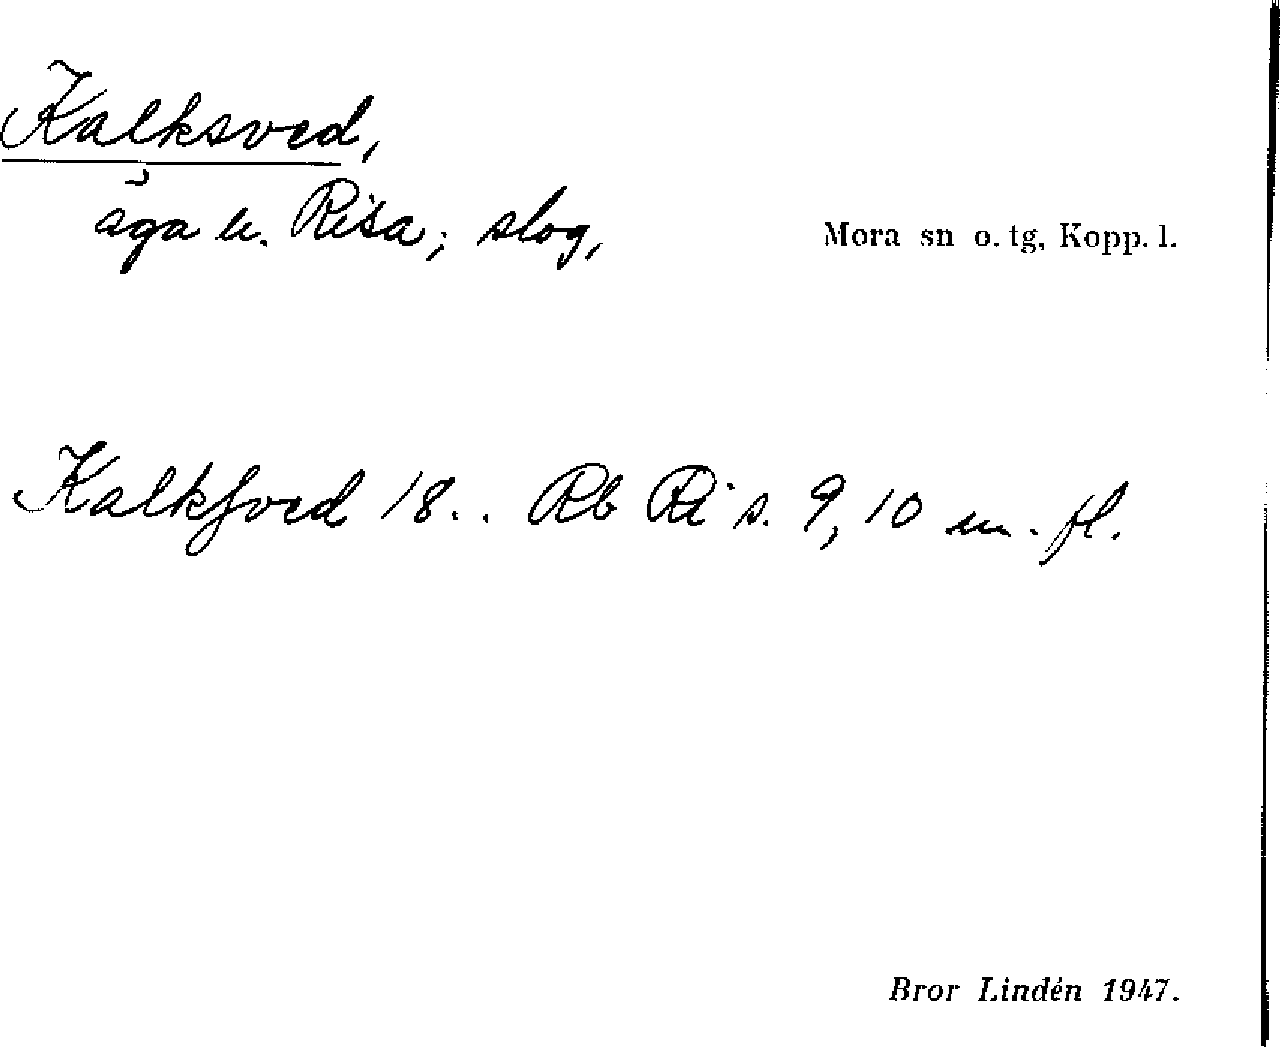 Kalksved,
äga u. Risa; slog,
Mora sn o. tg, Kopp. l.
Kalkſved 18.. Rb Ri s. 9, 10 m. fl.
Bror Lindén 1947.